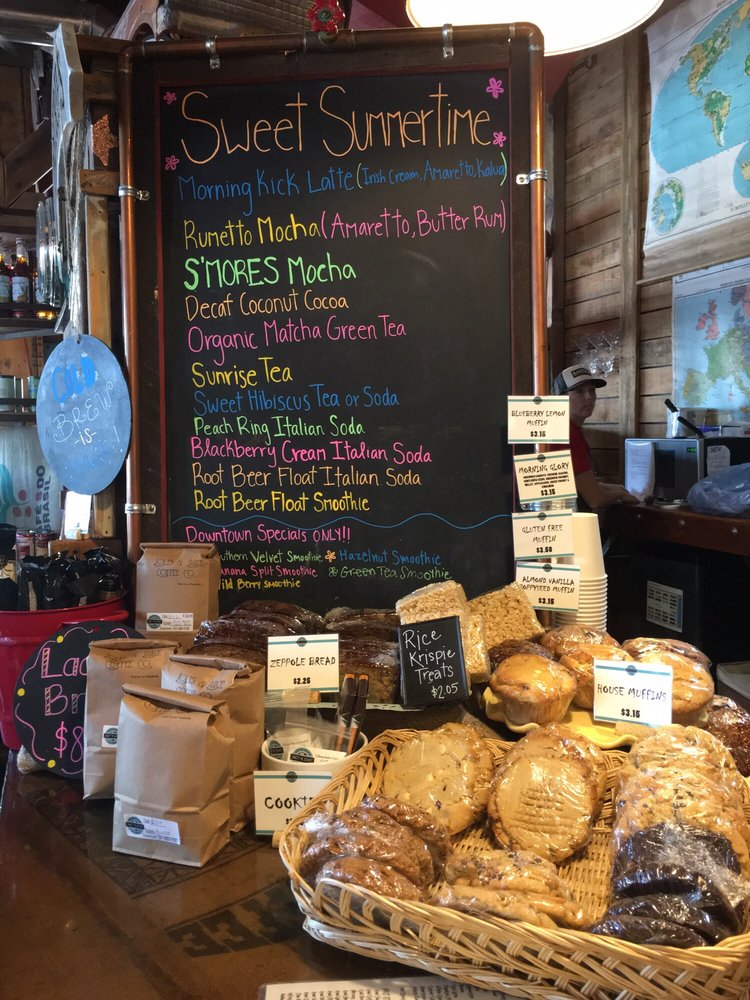 Sweet Summertime
Morning Kick Latte (Irish Cream, Amaretto, Kalua)
Rumetto Mocha (Amaretto, Butter Rum)
S'MORES Mocha
Decaf Coconut Cocoa
Organic Matcha Green Tea
Sunrise Tea
Sweet Hibiscus Tea or Soda
Peach Ring Italian Soda
Blackberry Cream Italian Soda
Root Beer Float Italian Soda
Root Beer Float Smoothie
Downtown Specials ONLY!!
uthern Velvet Smoothie Hazelnut Smoothie
anana Split Smoothie Green Tea Smoothie
Wild Berry Smoothie
COLD
BREW
is
BLUEBERRY LEMON
MUFFIN
$3.15
MORNING GLORY
$3.15
GLUTEN FREE
MUFFIN
$3.50
ALMOND VANILLA
POPPYSEED MUFFIN
$3.15
ZEPPOLE BREAD
$2.25
Rice
Krispie
Treats
$2.05
HOUSE MUFFINS
$3.15
COOK
COFFEE CO.
La
Br
$8
DO
BRASIL
FEE